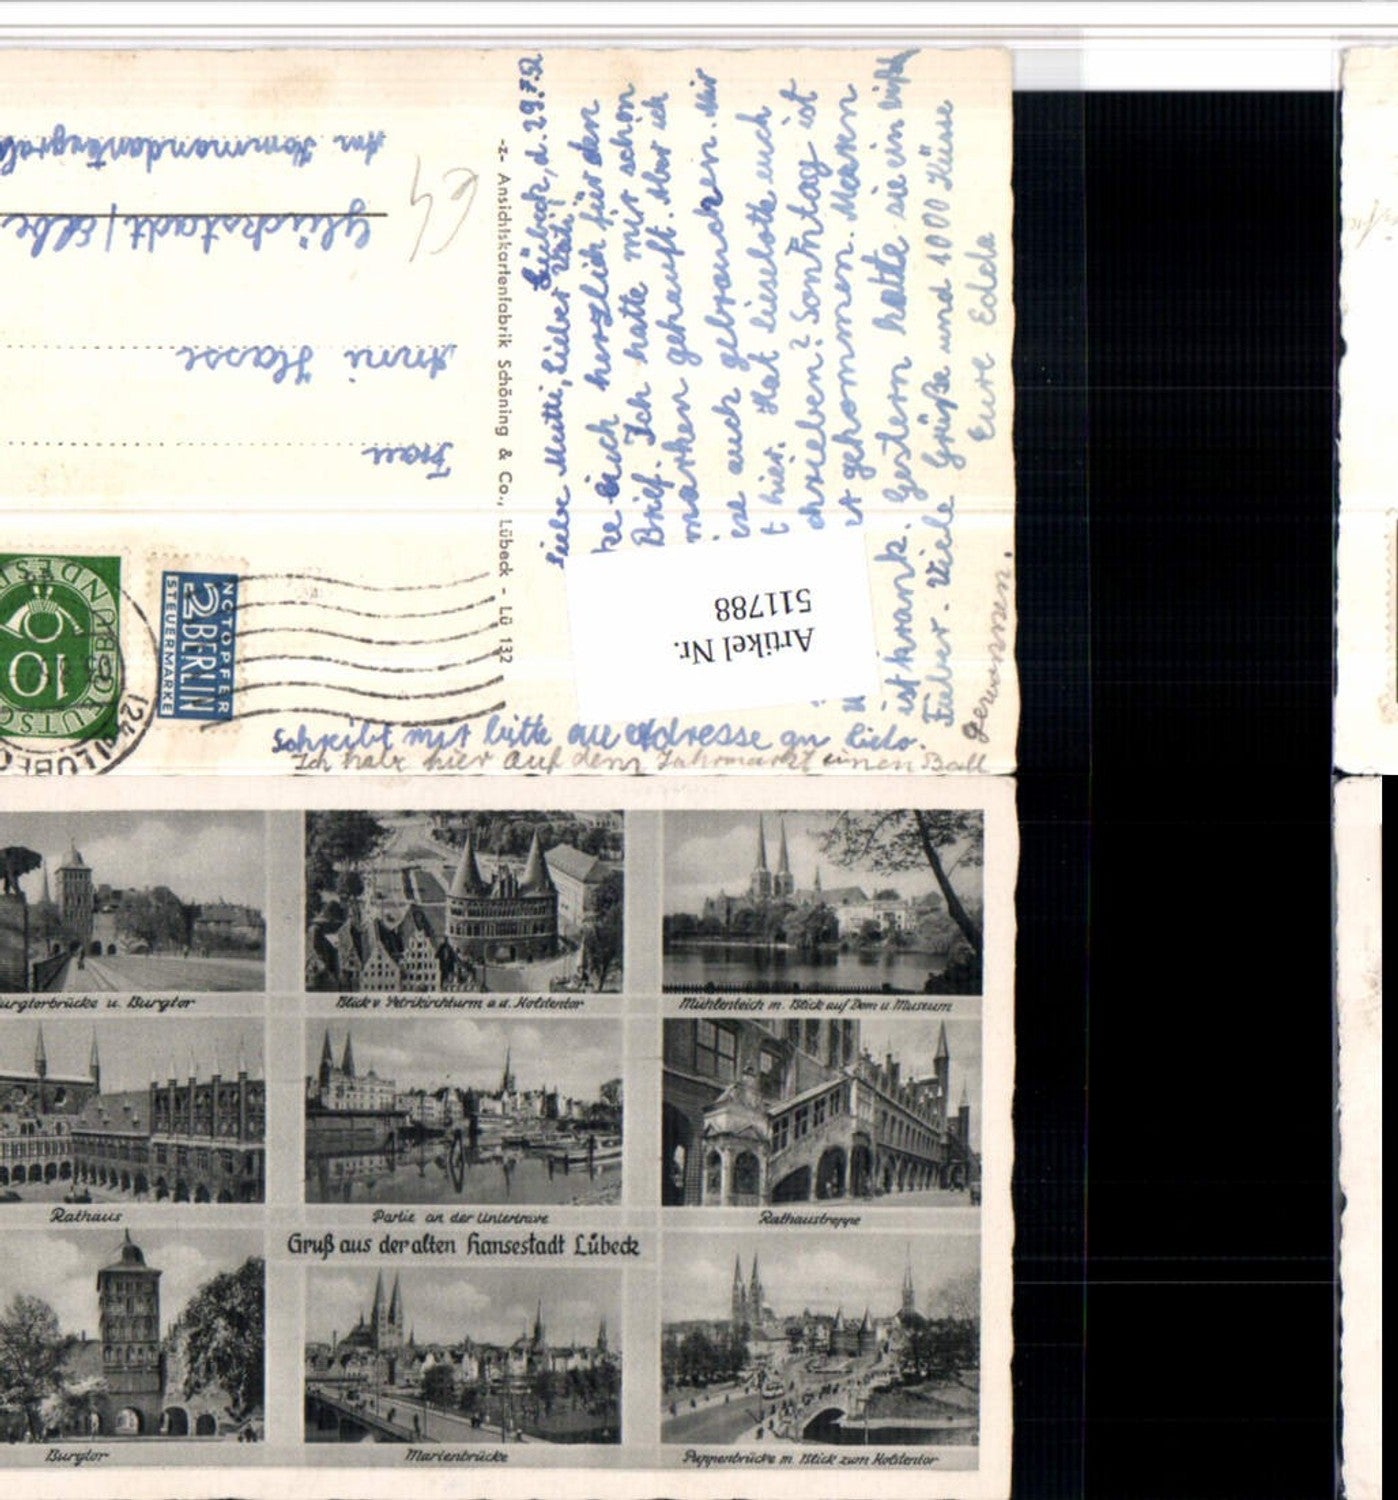 Lübeck, d. 29.7.52
Liebe Mutti, Lieber Vati
ke Euch herzlich für den
Brief. Ich hatte mir schon
marken gekauft. Aber ich
ese auch gebrauchen. Wir
t hier. Hat Lieselotte euch
chrieben? Sonntag ist
gekommen. Maren
ist krank. Gestern hatte sie ein
Fieber. Viele Grüße und 1000 Küsse
Eure Edda
Schreibt mir bitte die Adresse an
Ich habe hier auf dem Jahrmarkt einen Ball
gewonnen.
-z- Ansichtskartenfabrik Schöning & Co., Lübeck - Lü 132
Frau
Anni Hasse
Glückstadt/Elbe
Am Kommandantengrab
Artikel Nr.
511788
NOTOPFER
2 BERLIN
STEUERMARKE
10
LÜBEC
urgtorbrücke u. Burgtor
Blick v. Petrikirchturm a. d. Holstentor
Mühlenteich m. Blick auf Dom u. Museum
Rathaus
Partie an der Untertrave
Rathaustreppe
Gruß aus der alten Hansestadt Lübeck
Burgtor
Marienbrücke
Puppenbrücke m. Blick zum Holstentor